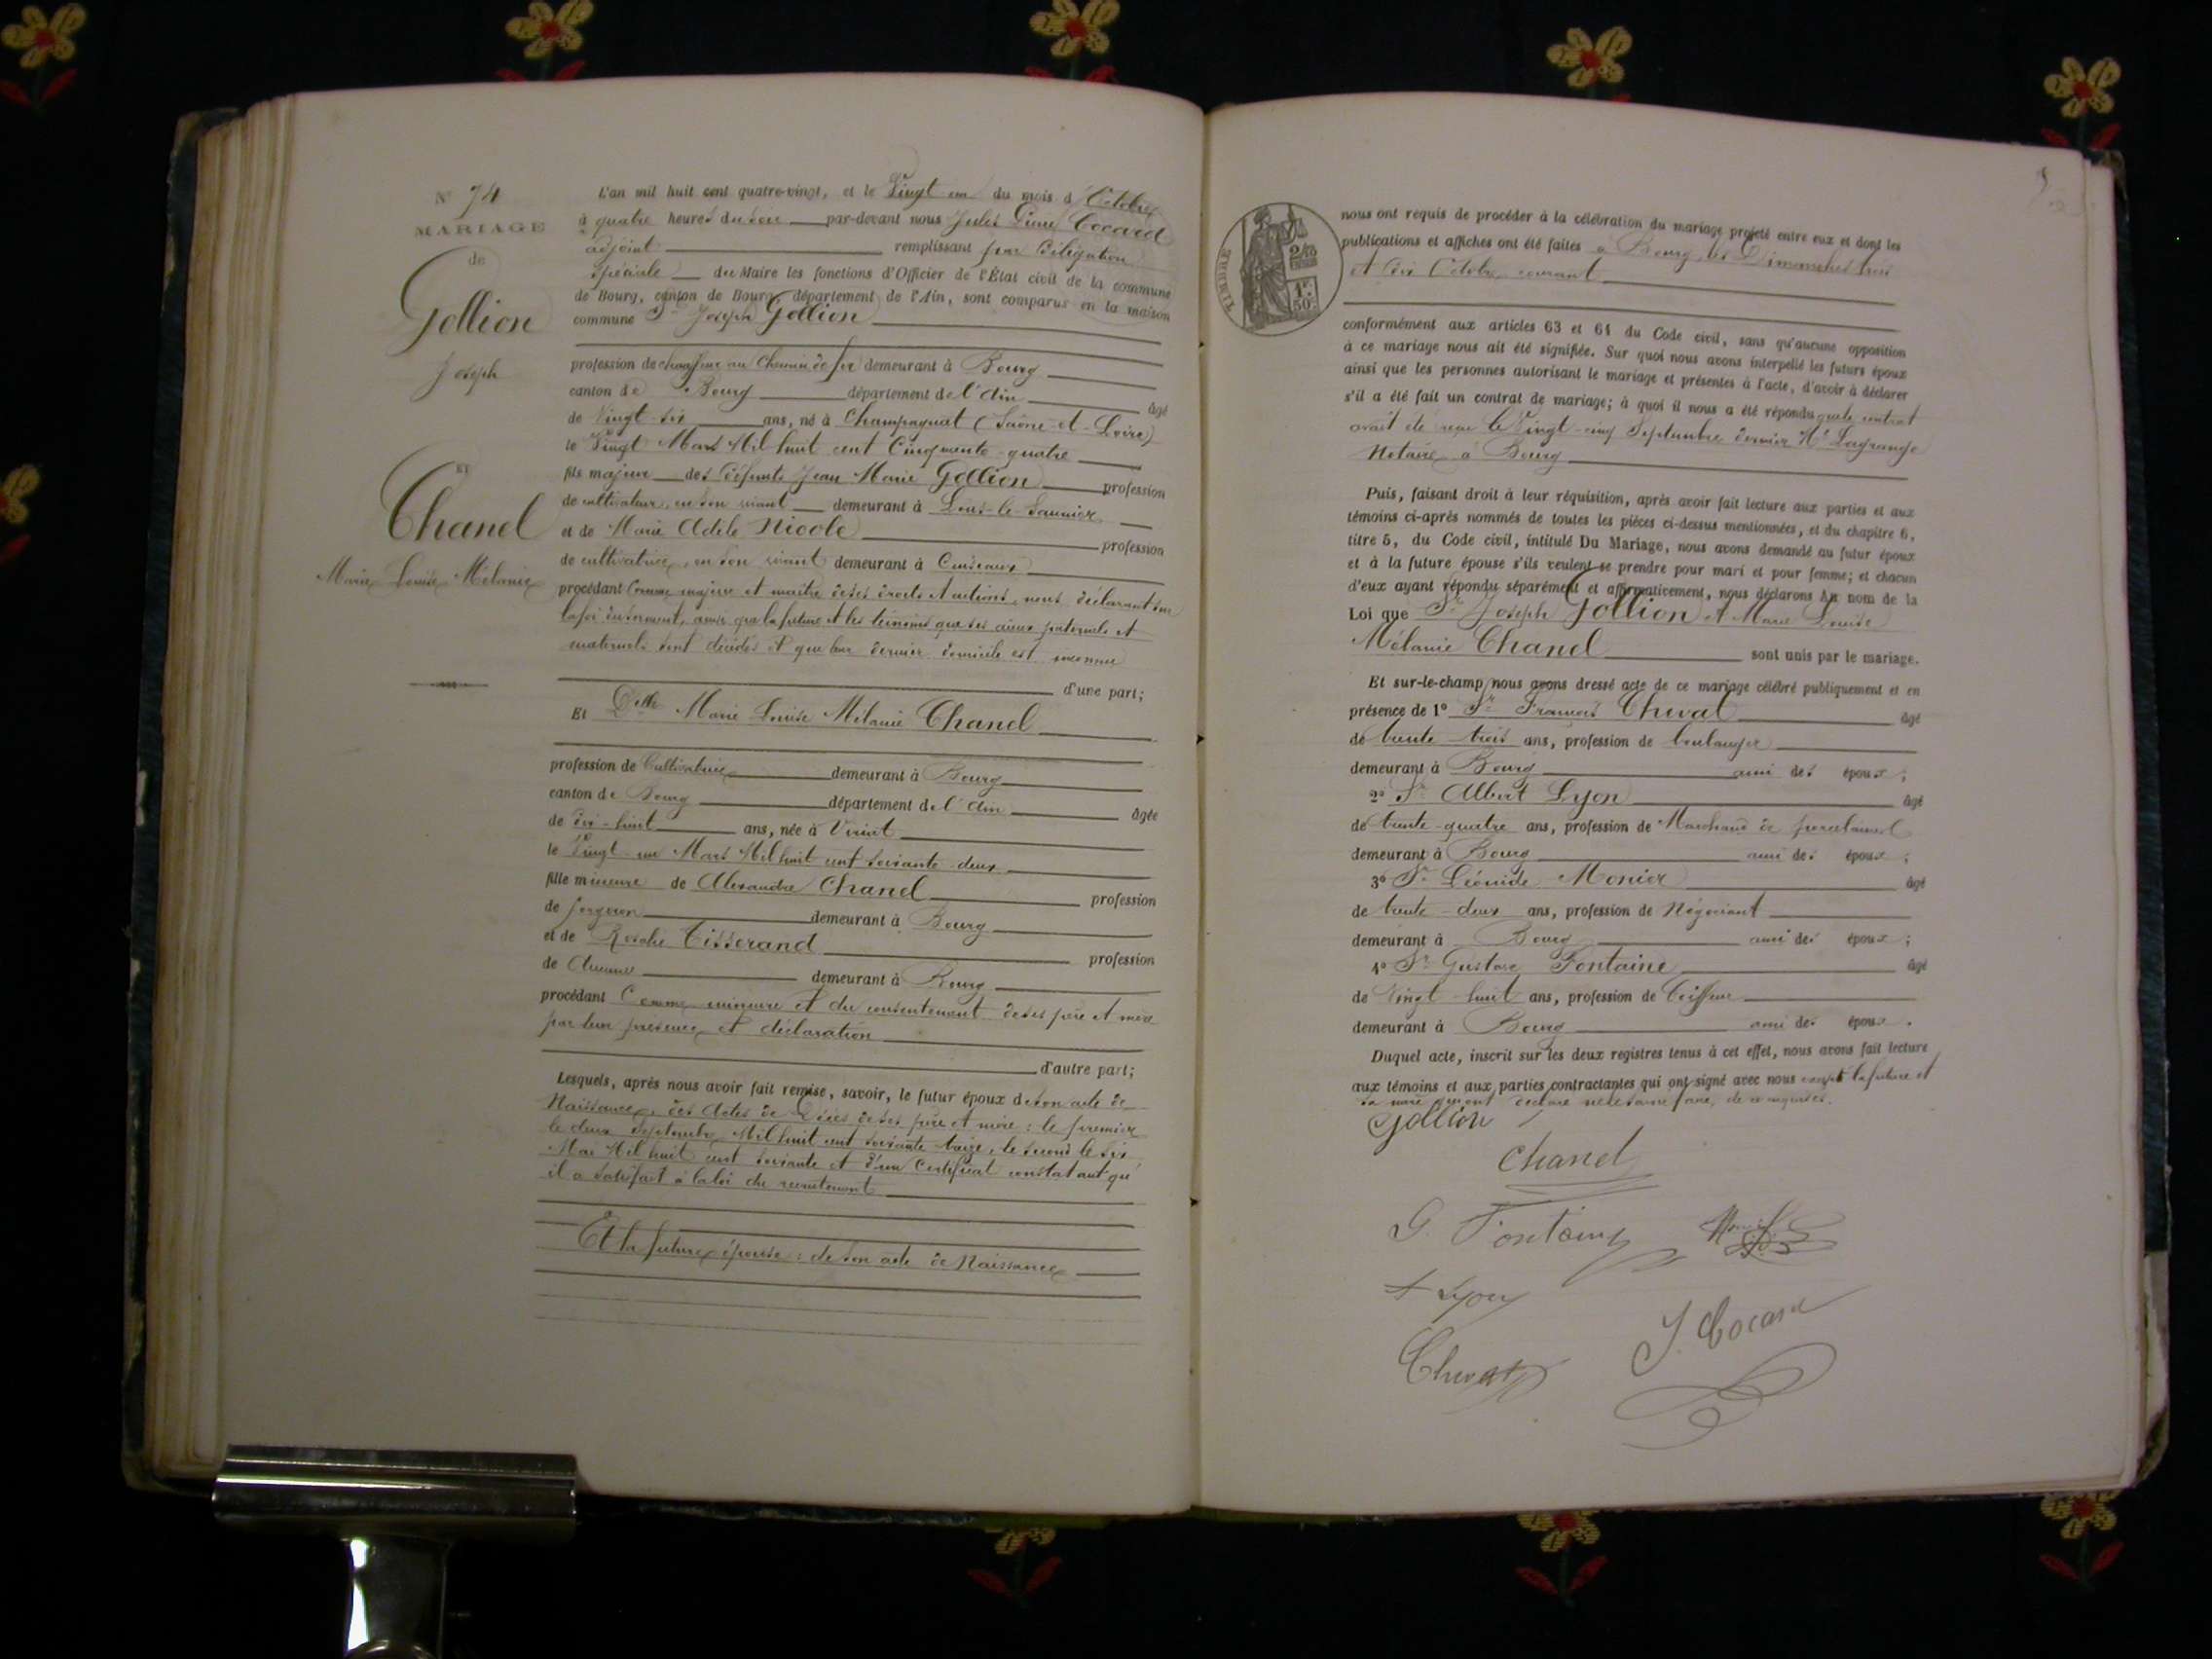 N° 74
MARIAGE
de
Gollion
Joseph
ET
Chanel
Marie Louise Mélanie
L'an mil huit cent quatre-vingt, et le Vingt un du mois d'Octobre
à quatre heures du soir par-devant nous Jules Pierre Cocard
adjoint remplissant par délégation
spéciale du Maire les fonctions d'Officier de l'État civil de la commune
de Bourg, canton de Bourg, département de l'Ain, sont comparus en la maison
commune Sr Joseph Gollion
profession de chauffeur au Chemin de fer demeurant à Bourg
canton de Bourg département de l'Ain âgé
de Vingt-six ans, né à Champagnat (Saône-et-Loire)
le Vingt Mars Mil huit cent Cinquante-quatre
fils majeur des défunts Jean Marie Gollion profession
de cultivateur, en son vivant demeurant à Lons-le-Saunier
et de Marie Adèle Nicole profession
de cultivatrice, en son vivant demeurant à Cuiseaux
procédant Comme majeur et maître de ses droits et actions, nous déclarant sur
la foi du serment, ainsi que la future et les témoins que ses aïeux paternels et
maternels sont décédés et que leur dernier domicile est inconnu
d'une part;
Et Delle Marie Louise Mélanie Chanel
profession de Cultivatrice demeurant à Bourg
canton de Bourg département de l'Ain âgée
de dix-huit ans, née à Viriat
le Vingt-un Mars Mil huit cent soixante-deux
fille mineure de Alexandre Chanel profession
de forgeron demeurant à Bourg
et de Rosalie Tisserand profession
de Aucune demeurant à Bourg
procédant Comme mineure et du consentement de ses père et mère
par leur présence et déclaration
d'autre part;
Lesquels, après nous avoir fait remise, savoir, le futur époux de son acte de
Naissance, des Actes de Décès de ses père et mère : le premier
le deux Septembre Mil huit cent soixante-treize, le second le six
Mai Mil huit cent soixante et d'un Certificat constatant qu'
il a satisfait à la loi du recrutement
Et la future épouse : de son acte de Naissance
TIMBRE
2/10
1F.
50c.
nous ont requis de procéder à la célébration du mariage projeté entre eux et dont les
publications et affiches ont été faites à Bourg, les Dimanches trois
et dix Octobre courant
conformément aux articles 63 et 64 du Code civil, sans qu'aucune opposition
à ce mariage nous ait été signifiée. Sur quoi nous avons interpellé les futurs époux
ainsi que les personnes autorisant le mariage et présentes à l'acte, d'avoir à déclarer
s'il a été fait un contrat de mariage; à quoi il nous a été répondu que le contrat
avait été reçu le Vingt-cinq Septembre dernier Me Lagrange
Notaire à Bourg
Puis, faisant droit à leur réquisition, après avoir fait lecture aux parties et aux
témoins ci-après nommés de toutes les pièces ci-dessus mentionnées, et du chapitre 6,
titre 5, du Code civil, intitulé Du Mariage, nous avons demandé au futur époux
et à la future épouse s'ils veulent se prendre pour mari et pour femme; et chacun
d'eux ayant répondu séparément et affirmativement, nous déclarons Au nom de la
Loi que Sr Joseph Gollion et Marie Louise
Mélanie Chanel sont unis par le mariage.
Et sur-le-champ nous avons dressé acte de ce mariage célébré publiquement et en
présence de 1° Sr François Chevat âgé
de trente-trois ans, profession de boulanger
demeurant à Bourg ami des époux ;
2° Sr Albert Lyon âgé
de trente-quatre ans, profession de Marchand de porcelaines
demeurant à Bourg ami des époux ;
3° Sr Léonide Monier âgé
de trente-deux ans, profession de Négociant
demeurant à Bourg ami des époux ;
4° Sr Gustave Fontaine âgé
de Vingt-huit ans, profession de Coiffeur
demeurant à Bourg ami des époux.
Duquel acte, inscrit sur les deux registres tenus à cet effet, nous avons fait lecture
aux témoins et aux parties contractantes qui ont signé avec nous excepté la future et
sa mère qui ont déclaré ne le savoir faire, de ce requises.
Gollion
Chanel
G. Fontaine
A Lyon
J. Cocard
Chevat